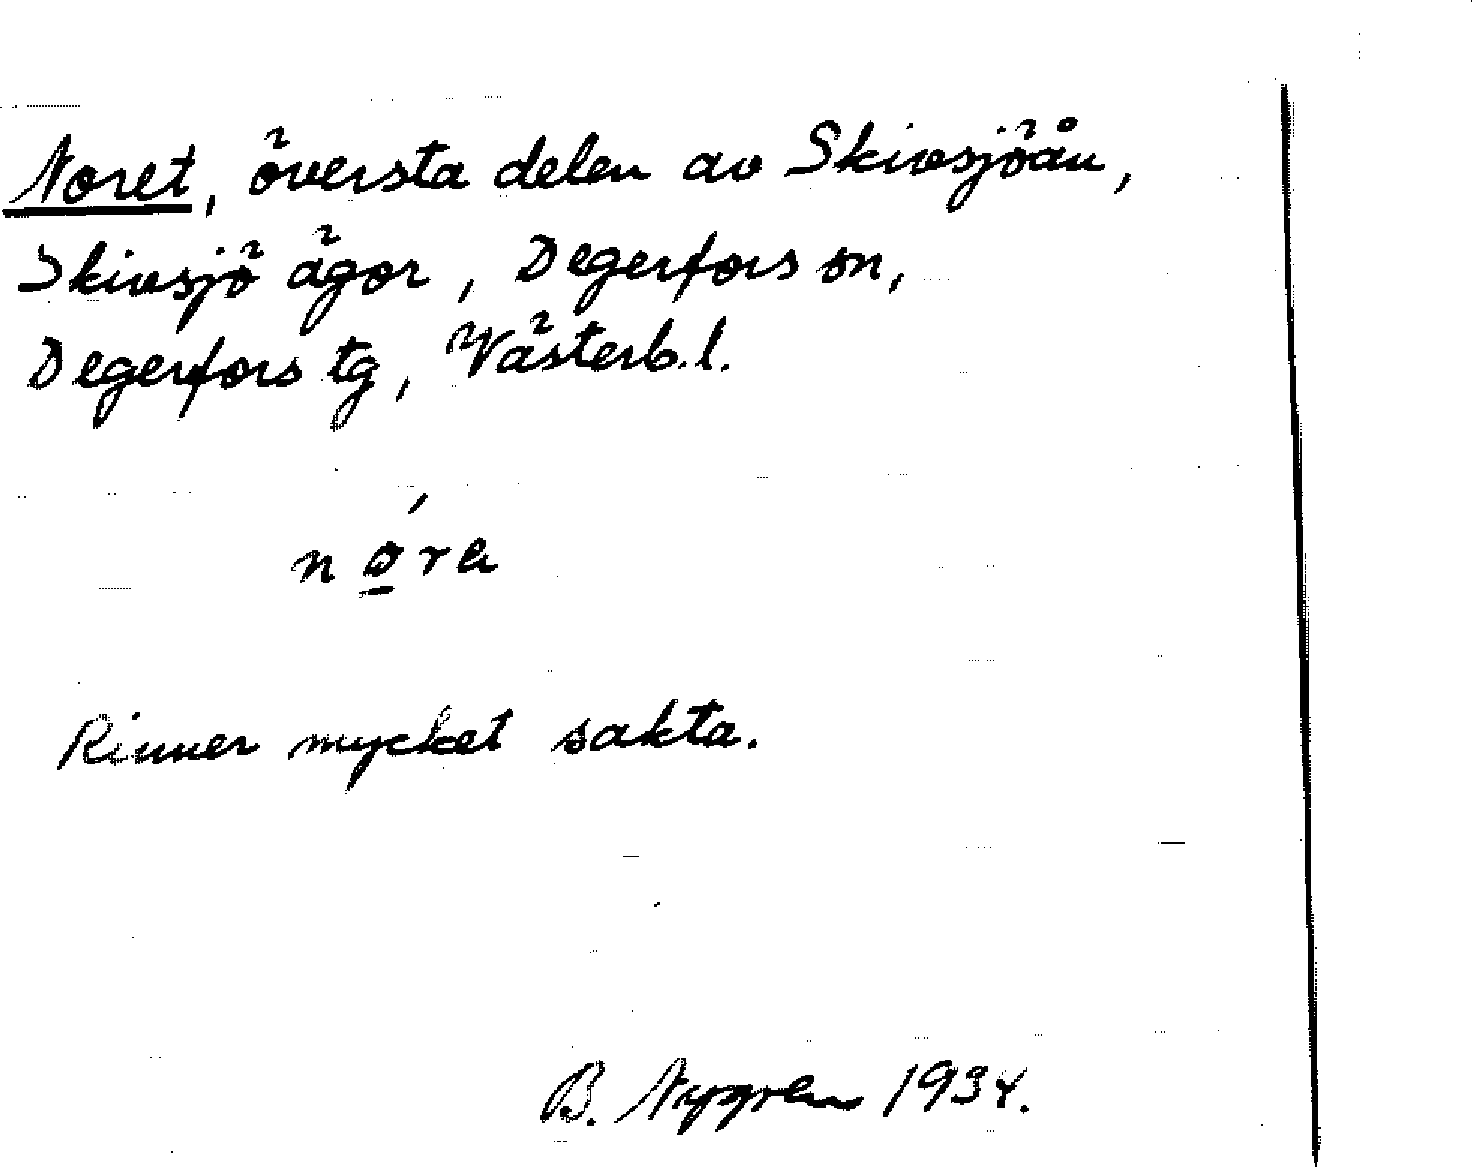 Noret, översta delen av Skivsjöån,
Skivsjö ägor, Degerfors sn,
Degerfors tg, Västerb.l.
Rinner mycket sakta.
B. Nygren 1934.